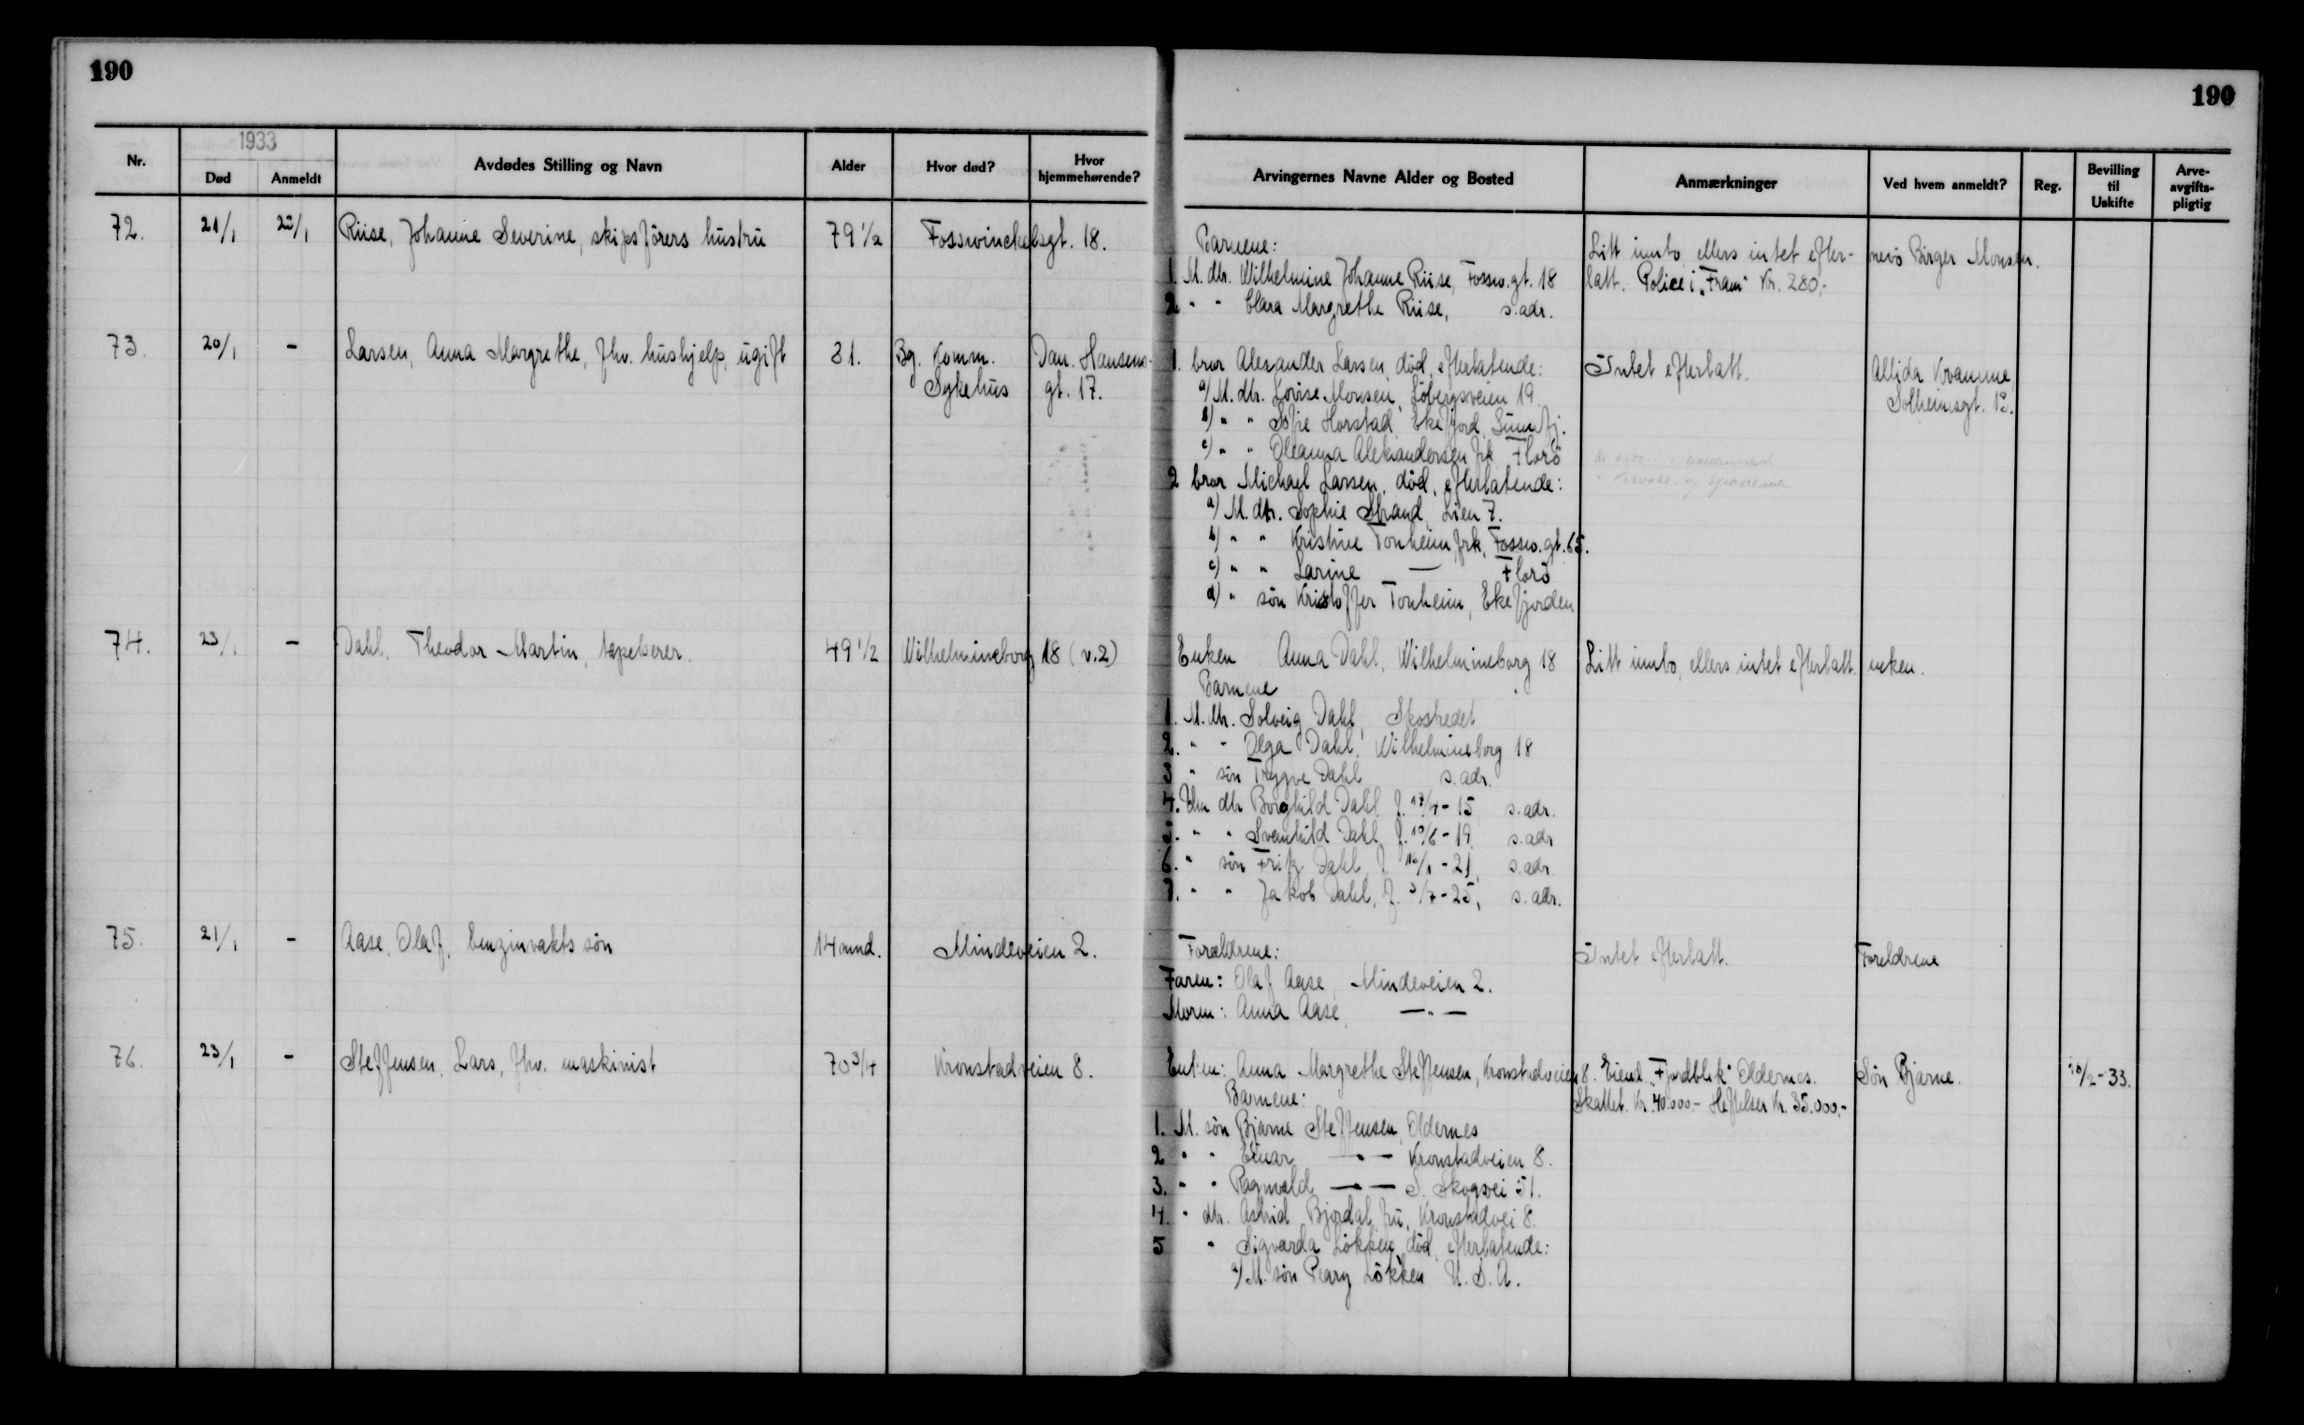 190
190
1933
Nr.
Død
Anmeldt
Avdødes Stilling og Navn
Alder
Hvor død?
Hvor hjemmehørende?
Arvingernes Navne Alder og Bosted
Anmærkninger
Ved hvem anmeldt?
Reg.
Bevilling til Uskifte
Arve-avgifts-pligtig
72. 21/1 Riise, Johanne Severine, skipsførers hustru 79 1/2 Fosswinckelsgt. 18.
Barnene:
1. M. dtr. Wilhelmine Johanne Riise, Fossw.gt. 18
2 " " Clara Margrethe Riise, s. adr.
Litt innbo ellers intet efter-
latt. Police i "Fram" Kr. 280,-
nevø Birger Monsen.
73. 20/1 - Larsen, Anna Margrethe, fhv. hushjelp, ugift 81. Bg. Komm. Dan. Hansens
Sykehus gt. 17.
1. bror Alexander Larsen, død, efterlatende:
a) M. dtr. Lovise Monsen, Løbergsveien 19
b) " " Sofie Horstad, Ekefjord, Sunnfj.
c) " " Oleanna Aleksandersen frk Florø
2 bror Michael Larsen, død, efterlatende:
a) M. dtr. Sophie Strand, Lien 7.
b) " " Kristine Tonheim frk, Fossw.gt. 65.
c) " " Larine — Florø
d) " søn Kristoffer Tonheim, Ekefjorden
Intet efterlatt.
Allida Kvamme,
Solheimsgt. 18.
74. 23/1 - Dahl, Theodor Martin, tapetserer. 49 1/2 Wilhelmineborg 18 (v.2)
Enken Anna Dahl, Wilhelmineborg 18
Barnene
1. M. dtr. Solveig Dahl, Skostredet
2. " " Olga Dahl, Wilhelmineborg 18
3 " søn Trygve Dahl s. adr.
4. Um dtr Borghild Dahl f. 17/4-15 s. adr.
5. " " Svenhild Dahl f. 19/6-19 s. adr
6. " søn Fritz Dahl f. 16/1-21, s. adr.
7. " " Jakob Dahl, f. 3/7-25, s. adr.
Litt innbo, ellers intet efterlatt.
enken.
75. 21/1 - Aase, Olaf, benzinvakts søn 14 mnd. Mindeveien 2.
Forældrene:
Faren: Olaf Aase, Mindeveien 2.
Moren: Anna Aase, —"—
Intet efterlatt.
Foreldrene
76. 23/1 - Steffensen, Lars, fhv. maskinist 70 3/4 Kronstadveien 8.
Enken: Anna Margrethe Steffensen, Kronstadveien 8.
Barnene:
1. M. søn Bjarne Steffensen, Oldernes
2 " " Einar —"— Kronstadveien 8.
3. " " Ragnvald —"— S. Skogvei 51.
4. " dtr. Astrid Bjordal, fru, Kronstadvei 8.
5 " Sigvarda Løkken, død, efterlatende:
a) M. søn Peary Løkken U. S. A.
Eiend. "Fjordblik" Oldernes.
Skattet. Kr. 40.000.- Heftelser Kr. 35.000,-
Søn Bjarne.